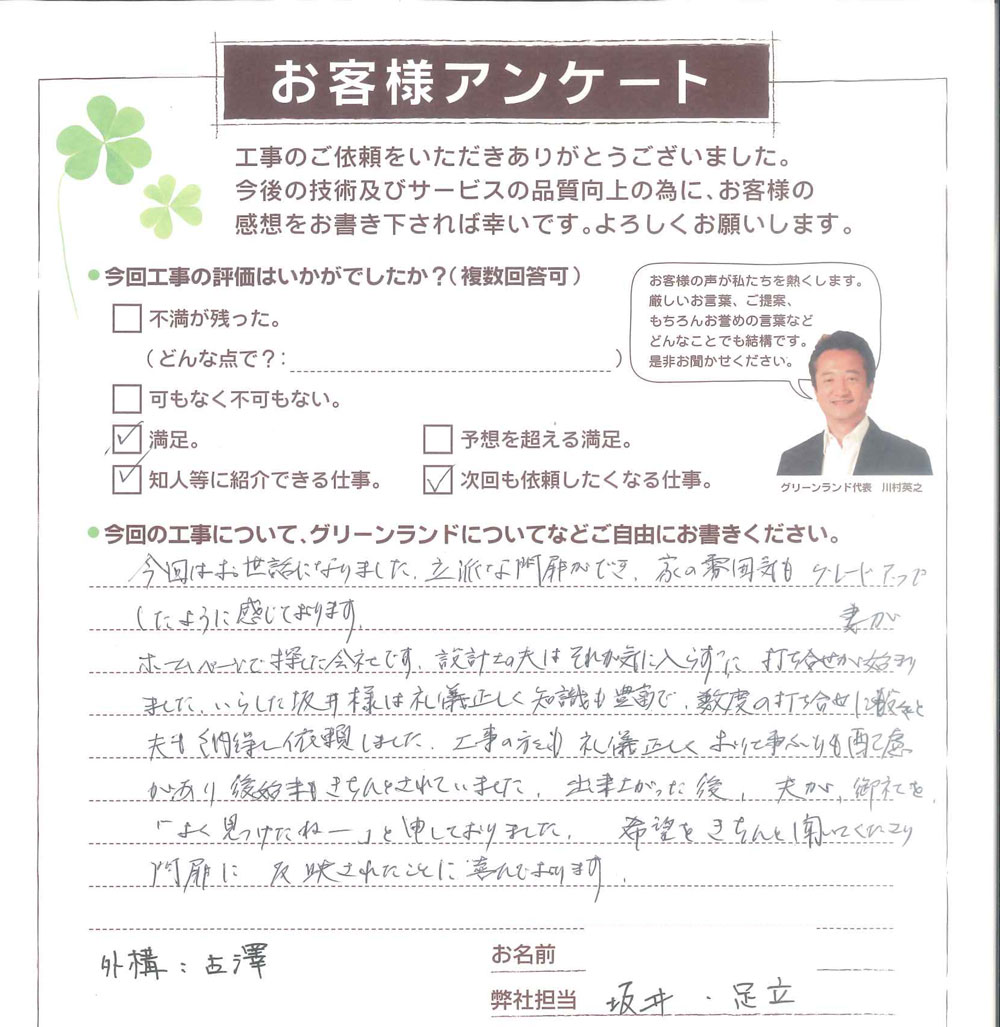 お客様アンケート
工事のご依頼をいただきありがとうございました。
今後の技術及びサービスの品質向上の為に、お客様の
感想をお書き下されば幸いです。よろしくお願いします。
今回工事の評価はいかがでしたか？（複数回答可）
お客様の声が私たちを熱くします。
厳しいお言葉、ご提案、
もちろんお誉めの言葉など
どんなことでも結構です。
是非お聞かせください。
不満が残った。
（どんな点で？：）
可もなく不可もない。
満足。
予想を超える満足。
知人等に紹介できる仕事。
次回も依頼したくなる仕事。
グリーンランド代表 川村英之
今回の工事について、グリーンランドについてなどご自由にお書きください。
今回はお世話になりました。立派な門扉ができ、家の雰囲気も グレードアップ
したように感じております。
妻が
ホームページで探した会社です。設計士の夫はそれが気に入らずに 打ち合せが始まり
ました。いらした坂井様は礼儀正しく知識も豊富で、数度の打ち合せに
夫も納得し依頼しました。工事の方も 礼儀正しく 配慮
があり後始末もきちんとされていました。出来上がった後、夫が、御社を
「よく見つけたねー」と申しておりました。希望をきちんと聞いてくださり
門扉に 反映されたことに喜んでおります。
外構：古澤
お名前
弊社担当 坂井・足立